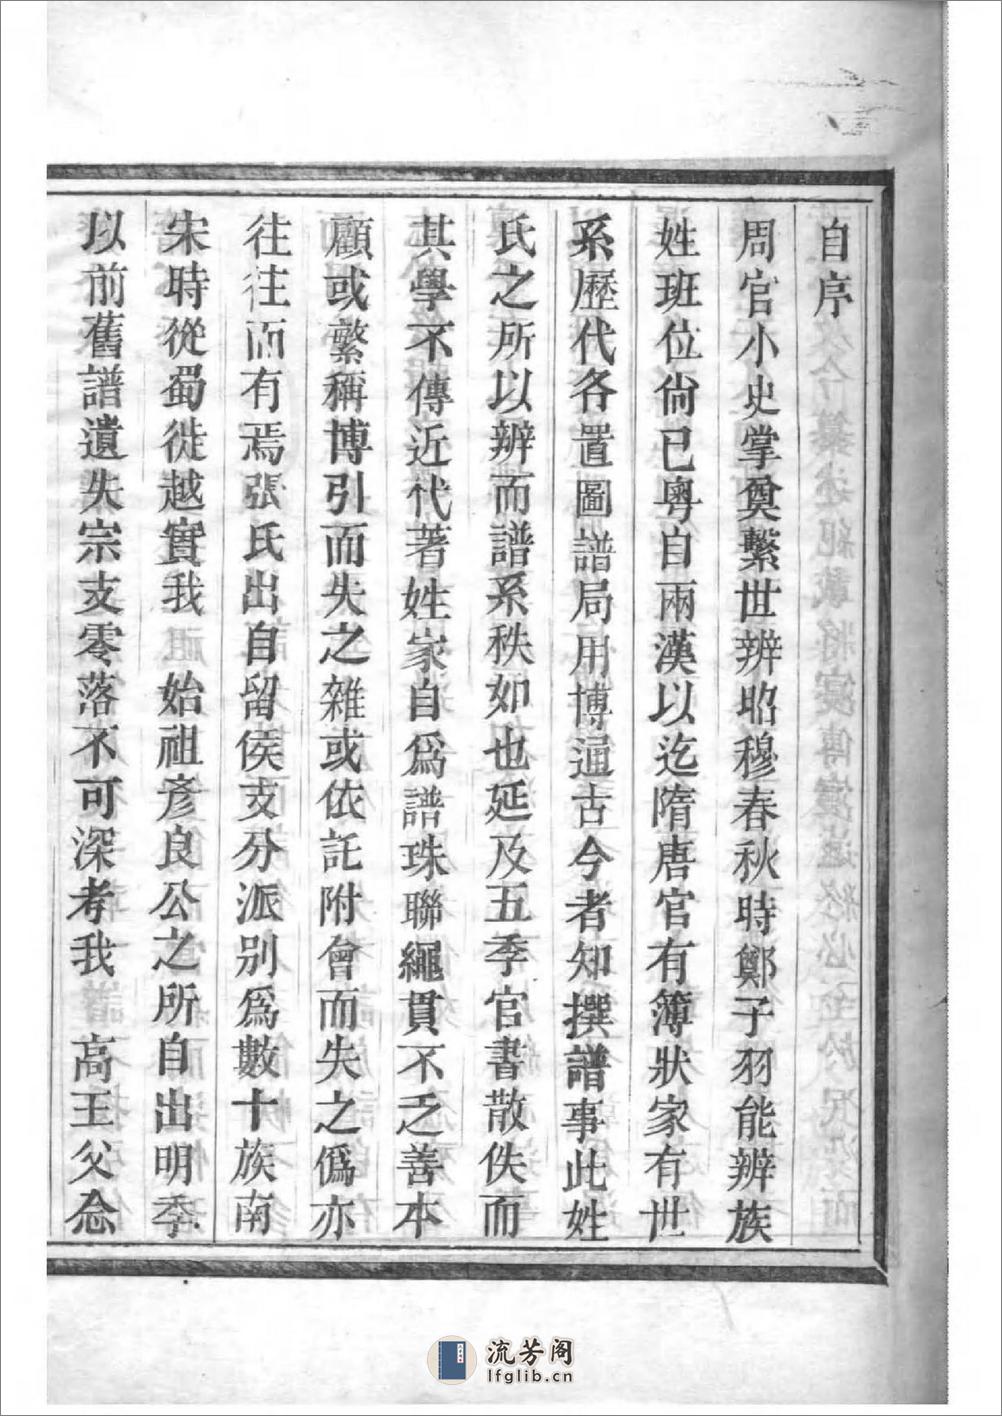 自序
周官小史掌奠繫世辨昭穆春秋時鄭子羽能辨族
姓班位尙已粵自兩漢以迄隋唐官有簿狀家有世
系歷代各置圖譜局用博通古今者知撰譜事此姓
氏之所以辨而譜系秩如也延及五季官書散佚而
其學不傳近代著姓家自爲譜珠聯繩貫不乏善本
顧或繁稱博引而失之雜或依託附會而失之僞亦
往往而有焉張氏出自留侯支分派別爲數十族南
宋時從蜀徙越實我　始祖彥良公之所自出明季
以前舊譜遺失宗支零落不可深考我　高王父念
流芳阁
lfglib.cn